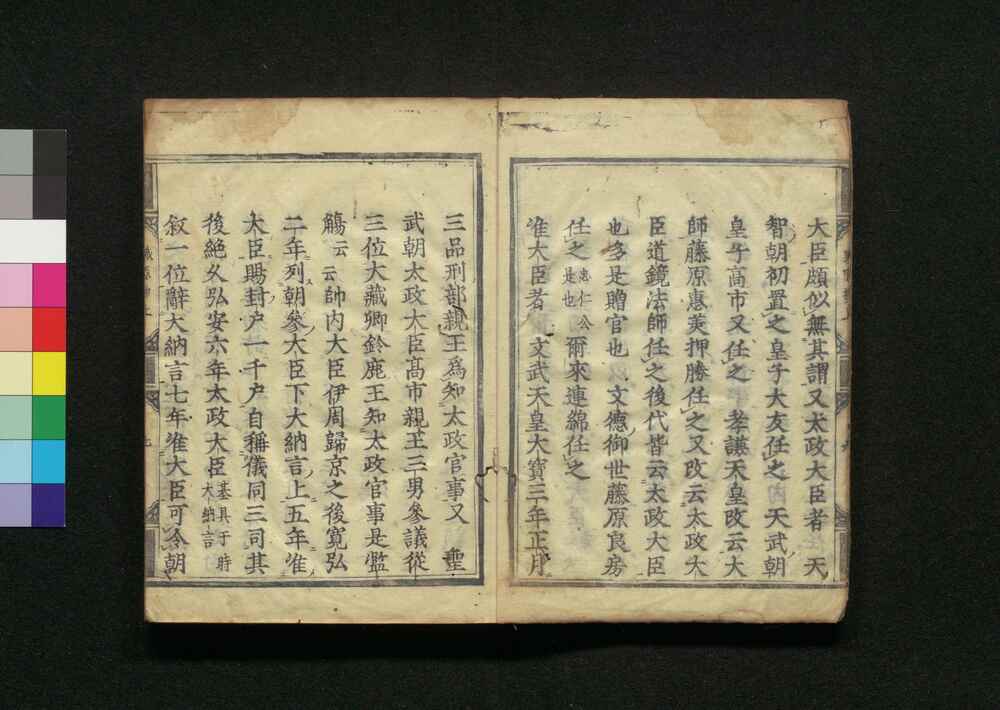 大臣頗似無其謂又太政大臣者　天
智朝初置之皇子大友任之　天武朝
皇子高市又任之　孝謙天皇改云大
師藤原惠美押勝任之又改云太政大
臣道鏡法師任之後代皆云太政大臣
也多是贈官也　文德御世藤原良房
任之忠仁公是也爾來連綿任之
准大臣者　文武天皇大寶三年正月
三品刑部親王爲知太政官事又　聖
武朝太政大臣高市親王三男參議從
三位大藏卿鈴鹿王知太政官事是濫
觴云云帥內大臣伊周歸京之後寬弘
二年列朝參大臣下大納言上五年准
大臣賜封戶一千戶自稱儀同三司其
後絕久弘安六年太政大臣基具于時大納言
叙一位辭大納言七年准大臣可令朝